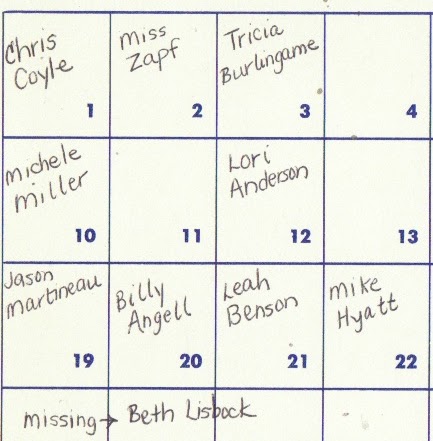 Chris
Coyle
1
miss
Zapf
2
Tricia
Burlingame
3
4
michele
miller
10
11
Lori
Anderson
12
13
Jason
martineau
19
Billy
Angell
20
Leah
Benson
21
mike
Hyatt
22
missing→ Beth Lisbock